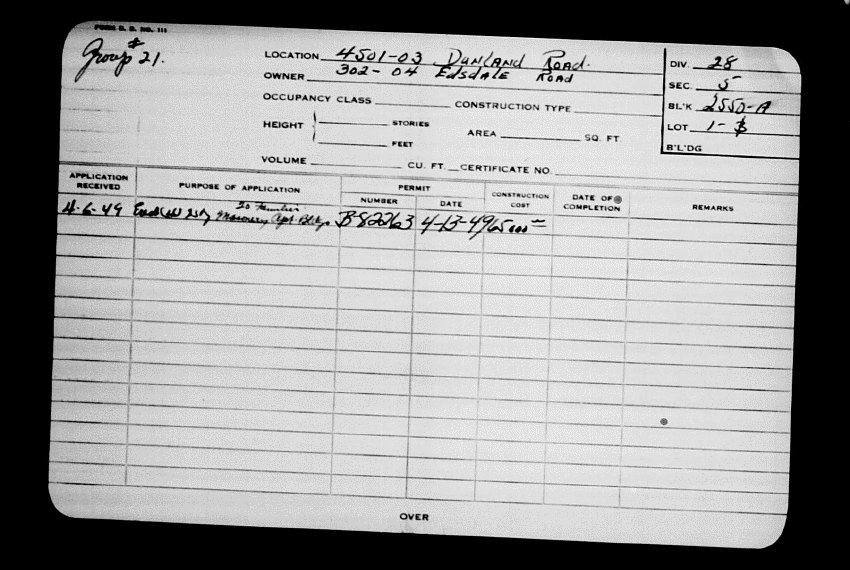 FORM B. B. NO. 111
Group # 21.
LOCATION 4501-03 Dunland Road.
OWNER 302-04 Edsdale Road
OCCUPANCY CLASS CONSTRUCTION TYPE
HEIGHT STORIES AREA SQ. FT.
FEET
VOLUME CU. FT. CERTIFICATE NO.
DIV. 28
SEC. 5
BL'K 2550-A
LOT 1-
B'L'DG
APPLICATION RECEIVED PURPOSE OF APPLICATION PERMIT NUMBER DATE CONSTRUCTION COST DATE OF COMPLETION REMARKS
4-6-49 20 Families Masonry Apt. Bldgs B82263 4-13-49
OVER